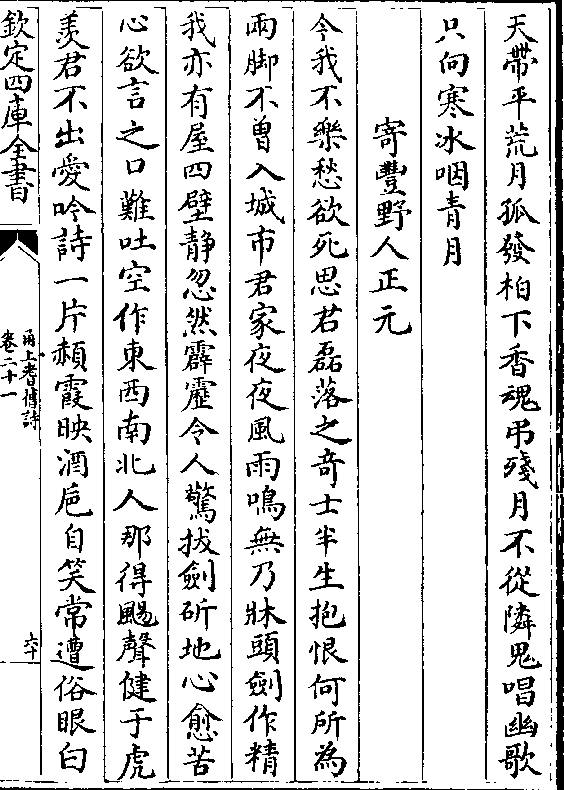 天帶平荒月孤發柏下香魂弔殘月不從隣鬼唱幽歌
只向寒冰咽青月
寄豐野人正元
今我不樂愁欲死思君磊落之奇士半生抱恨何所為
兩脚不曾入城市君家夜夜風雨鳴無乃牀頭劍作精
我亦有屋四壁静忽然霹靂令人驚拔劍斫地心愈苦
心欲言之口難吐空作東西南北人那得颺聲健于虎
羡君不出愛吟詩一片赬霞映酒巵自笑常遭俗眼白
欽定四庫全書
甬上耆舊詩
卷二十一
六十